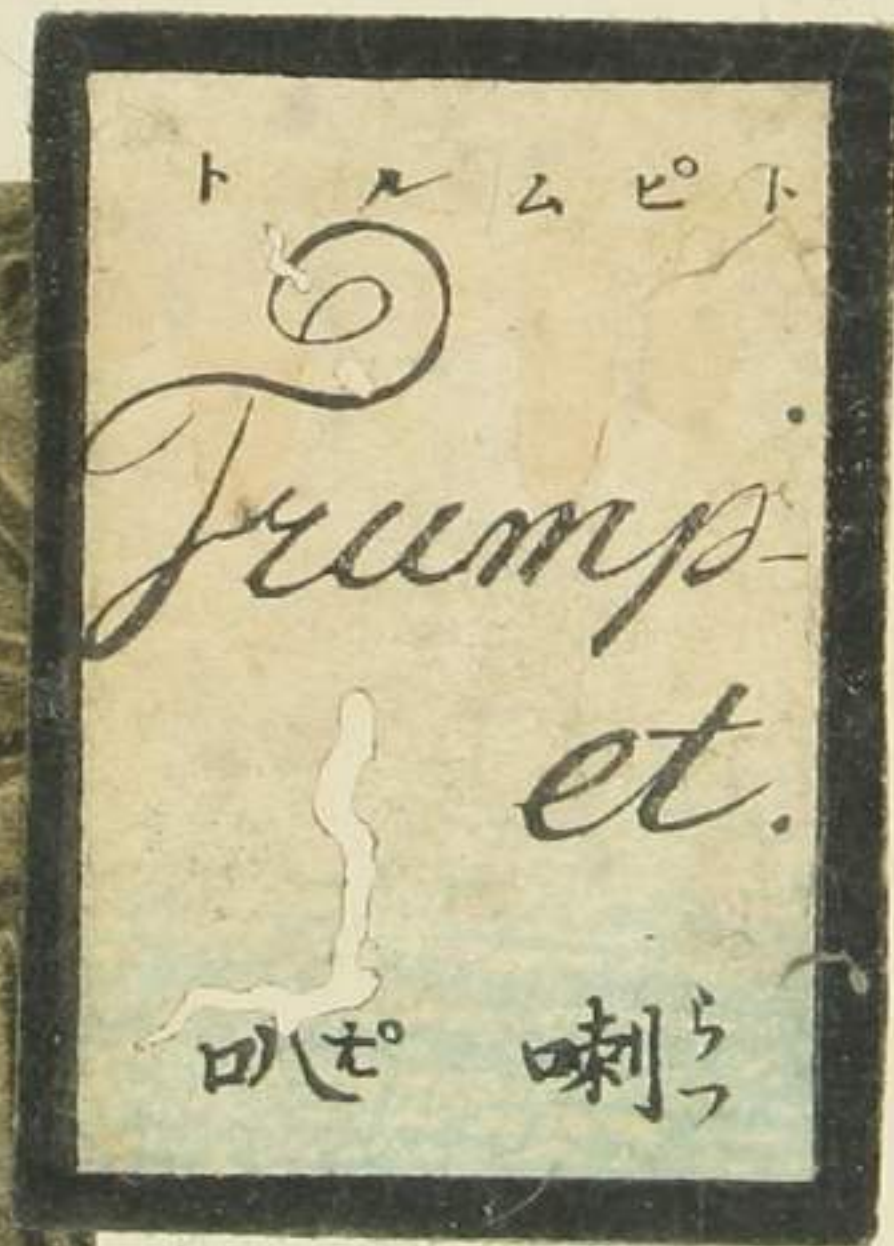 トルムピト
Trump-
et.
喇叭
らつぱ